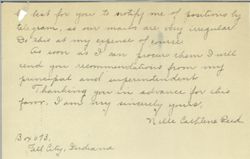 best for you to notify me of positions by
telegram, as our mails are very irregular
Do this at my expense of course.
As soon as I can procure them I will
send you recommendations from my
principal and superintendent.
Thanking you in advance for this
favor. I am very sincerely yours,
Nelle Reed
Box 693,
City, Indiana